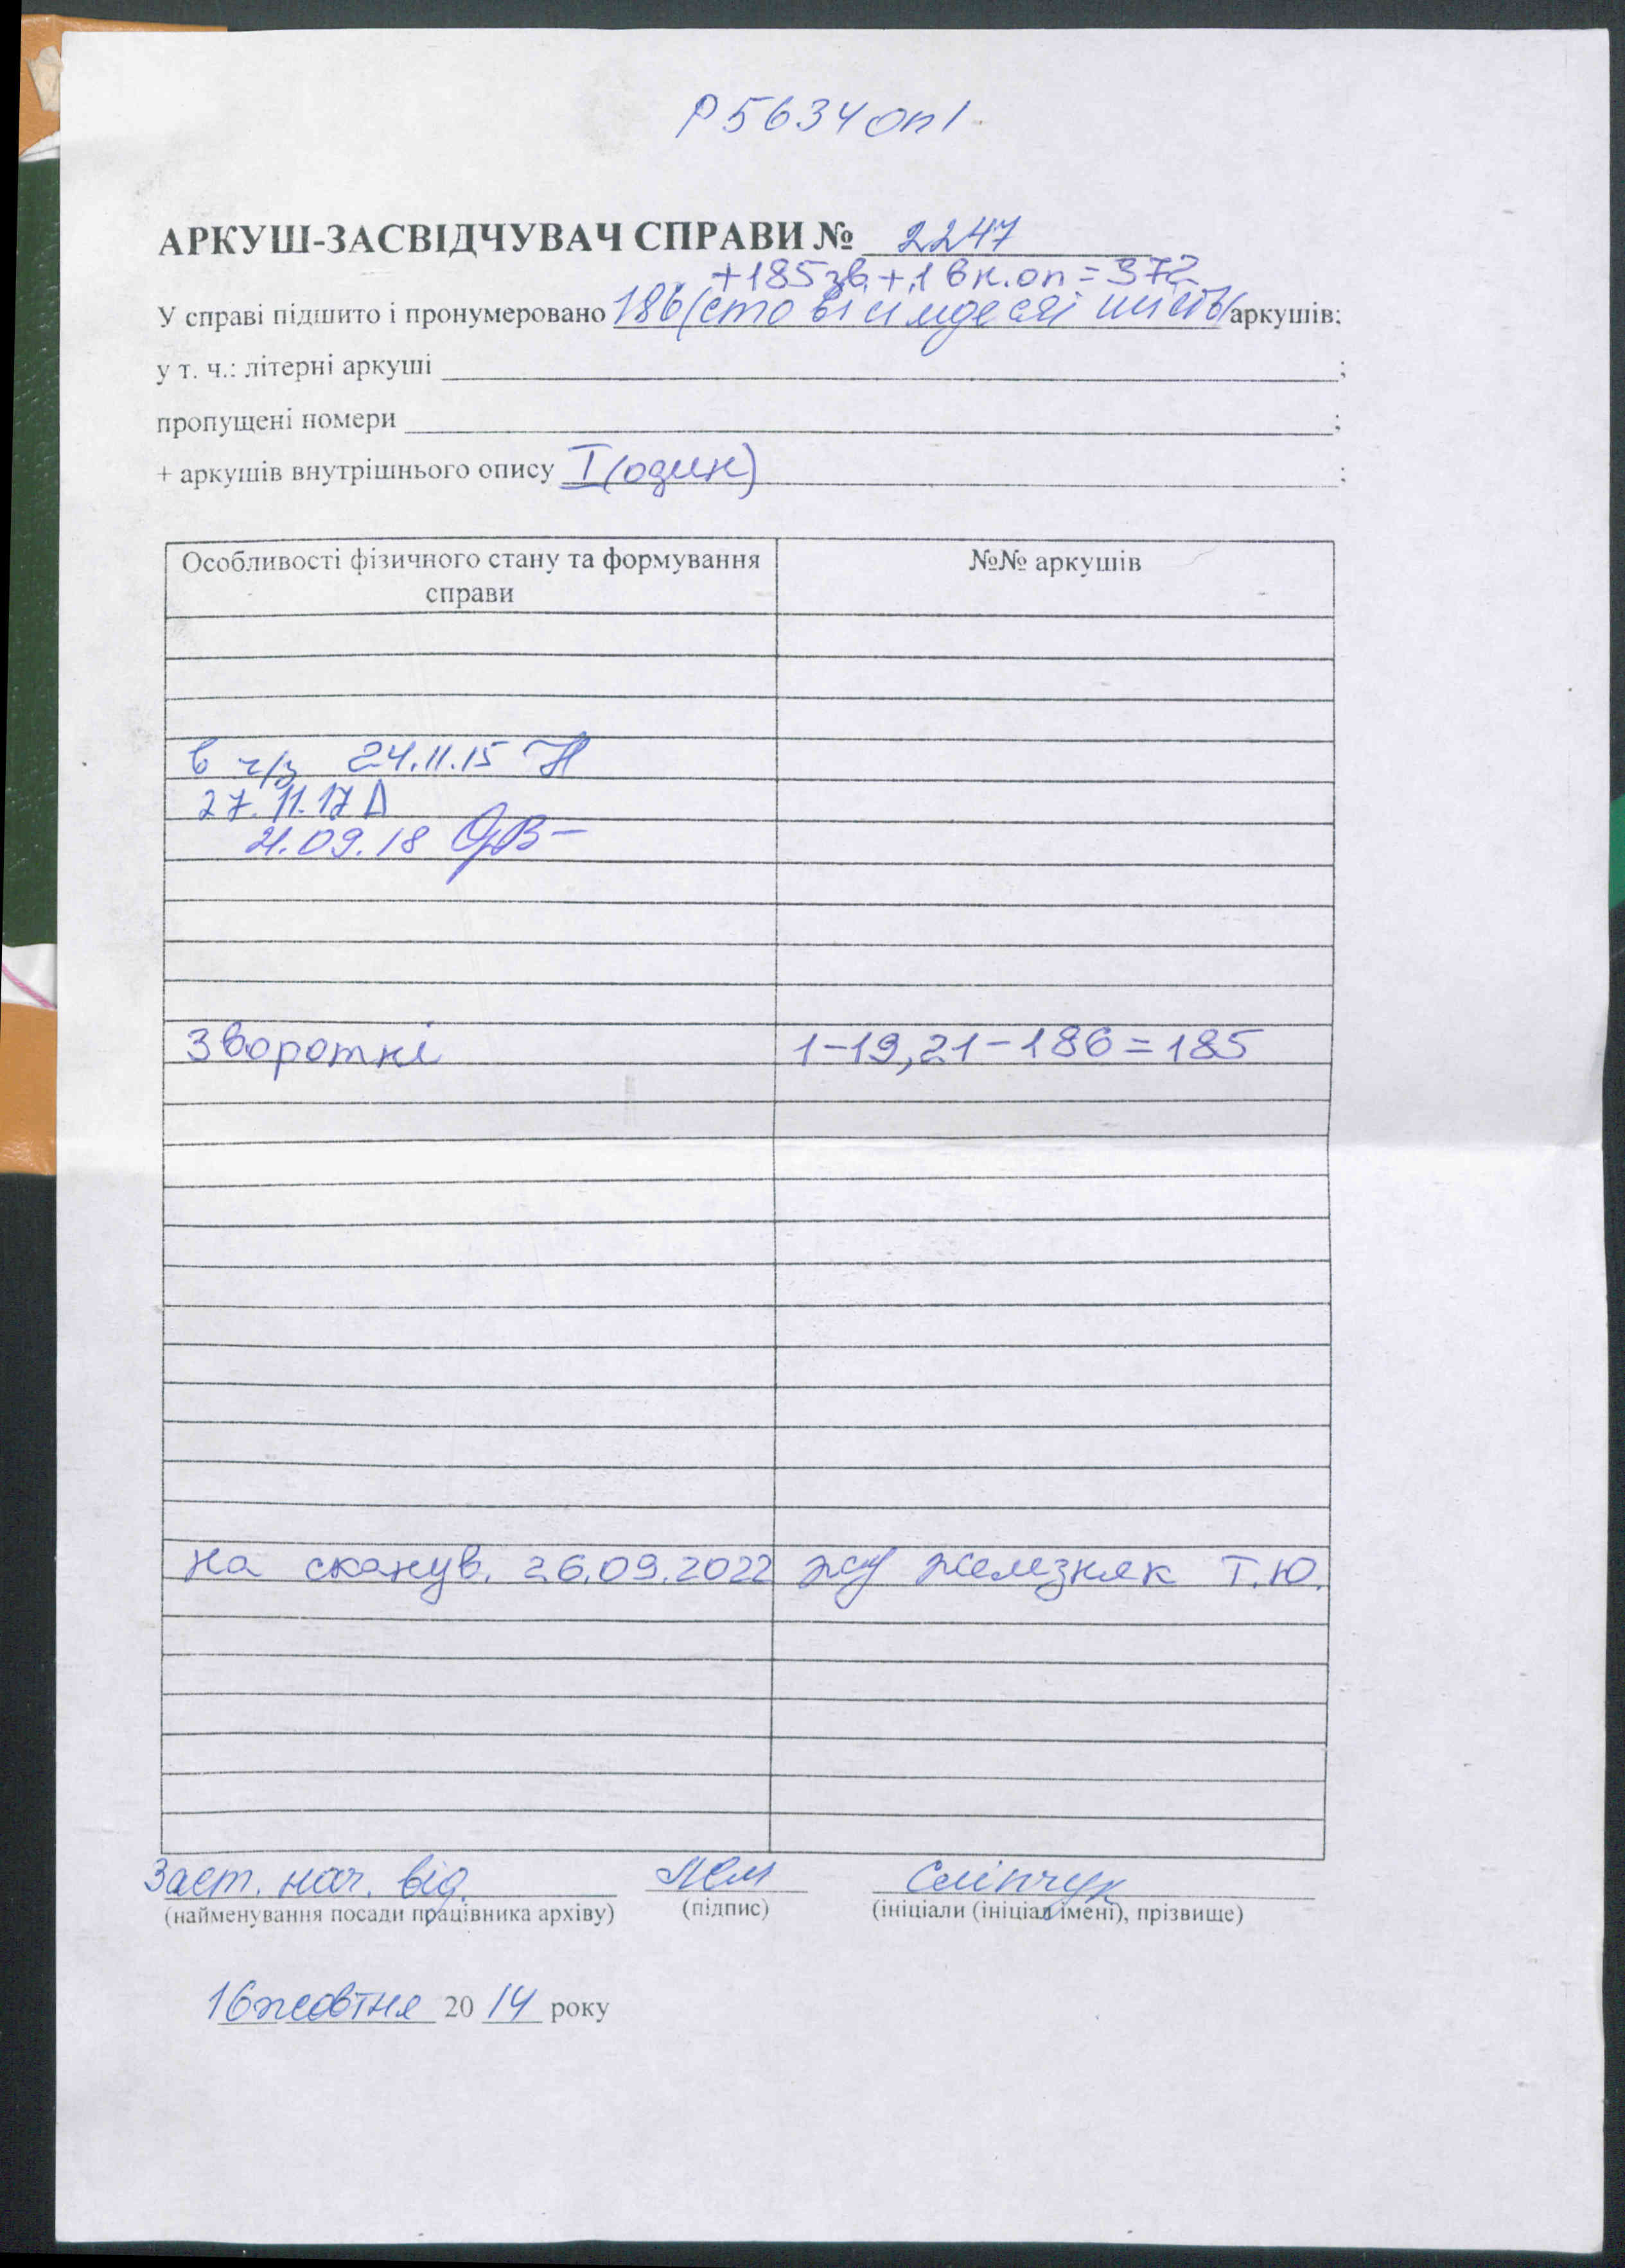 Р5634 оп1
АРКУШ-ЗАСВІДЧУВАЧ СПРАВИ № 2247
+185 зв. + 1 вн.оп = 372
У справі підшито і пронумеровано 186 (сто вісімдесят шість) аркушів;
у т. ч.: літерні аркуші ;
пропущені номери ;
+ аркушів внутрішнього опису I (один) ;
Особливості фізичного стану та формування справи №№ аркушів
в ч/з 24.11.15
27.11.17
21.09.18
Зворотні 1-19, 21-186=185
на сканув. 26.09.2022 Железняк Т.Ю.
Заст. нач. від. Сліпчук
(найменування посади працівника архіву) (підпис) (ініціали (ініціал імені), прізвище)
16 жовтня 20 14 року